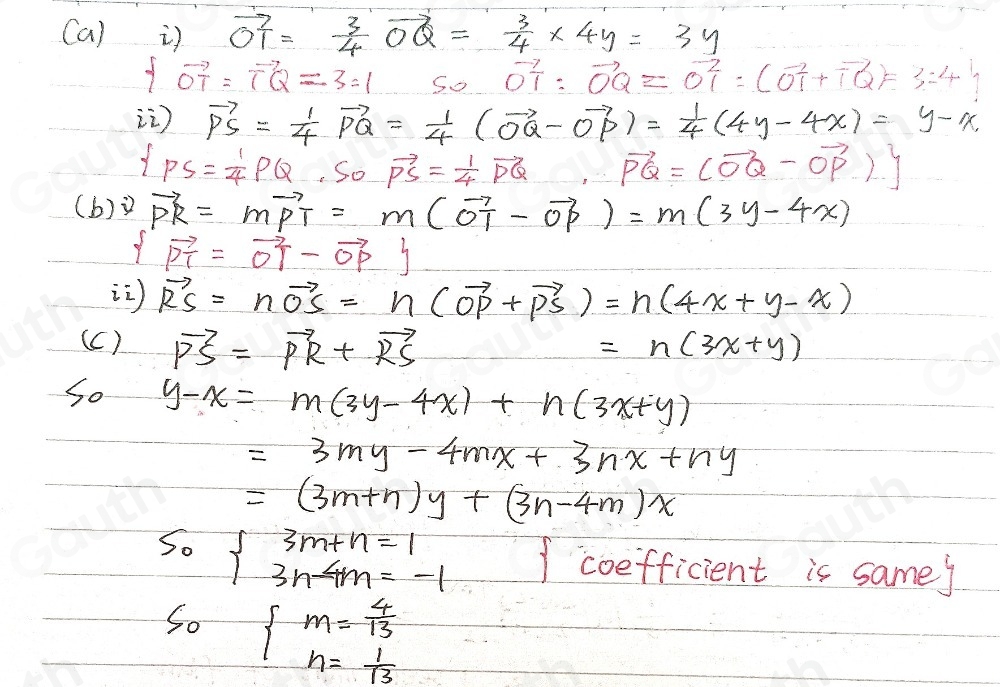 (a) i) OT⃗ = 3/4 OQ⃗ = 3/4 × 4y = 3y
{ OT⃗ : TQ⃗ = 3:1 so OT⃗ : OQ⃗ = OT⃗ : (OT⃗ + TQ⃗) = 3:4 }
ii) PS⃗ = 1/4 PQ⃗ = 1/4 (OQ⃗ - OP⃗) = 1/4 (4y - 4x) = y - x
{ PS = 1/4 PQ . So PS⃗ = 1/4 PQ⃗ , PQ⃗ = (OQ⃗ - OP⃗) }
(b) i) PR⃗ = mPT⃗ = m(OT⃗ - OP⃗) = m(3y - 4x)
{ PT⃗ = OT⃗ - OP⃗ }
ii) RS⃗ = nOS⃗ = n(OP⃗ + PS⃗) = n(4x + y - x)
(C) PS⃗ = PR⃗ + RS⃗ = n(3x + y)
So y - x = m(3y - 4x) + n(3x + y)
= 3my - 4mx + 3nx + ny
= (3m + n)y + (3n - 4m)x
So { 3m + n = 1
3n - 4m = -1 { coefficient is same }
So { m = 4/13
n = 1/13